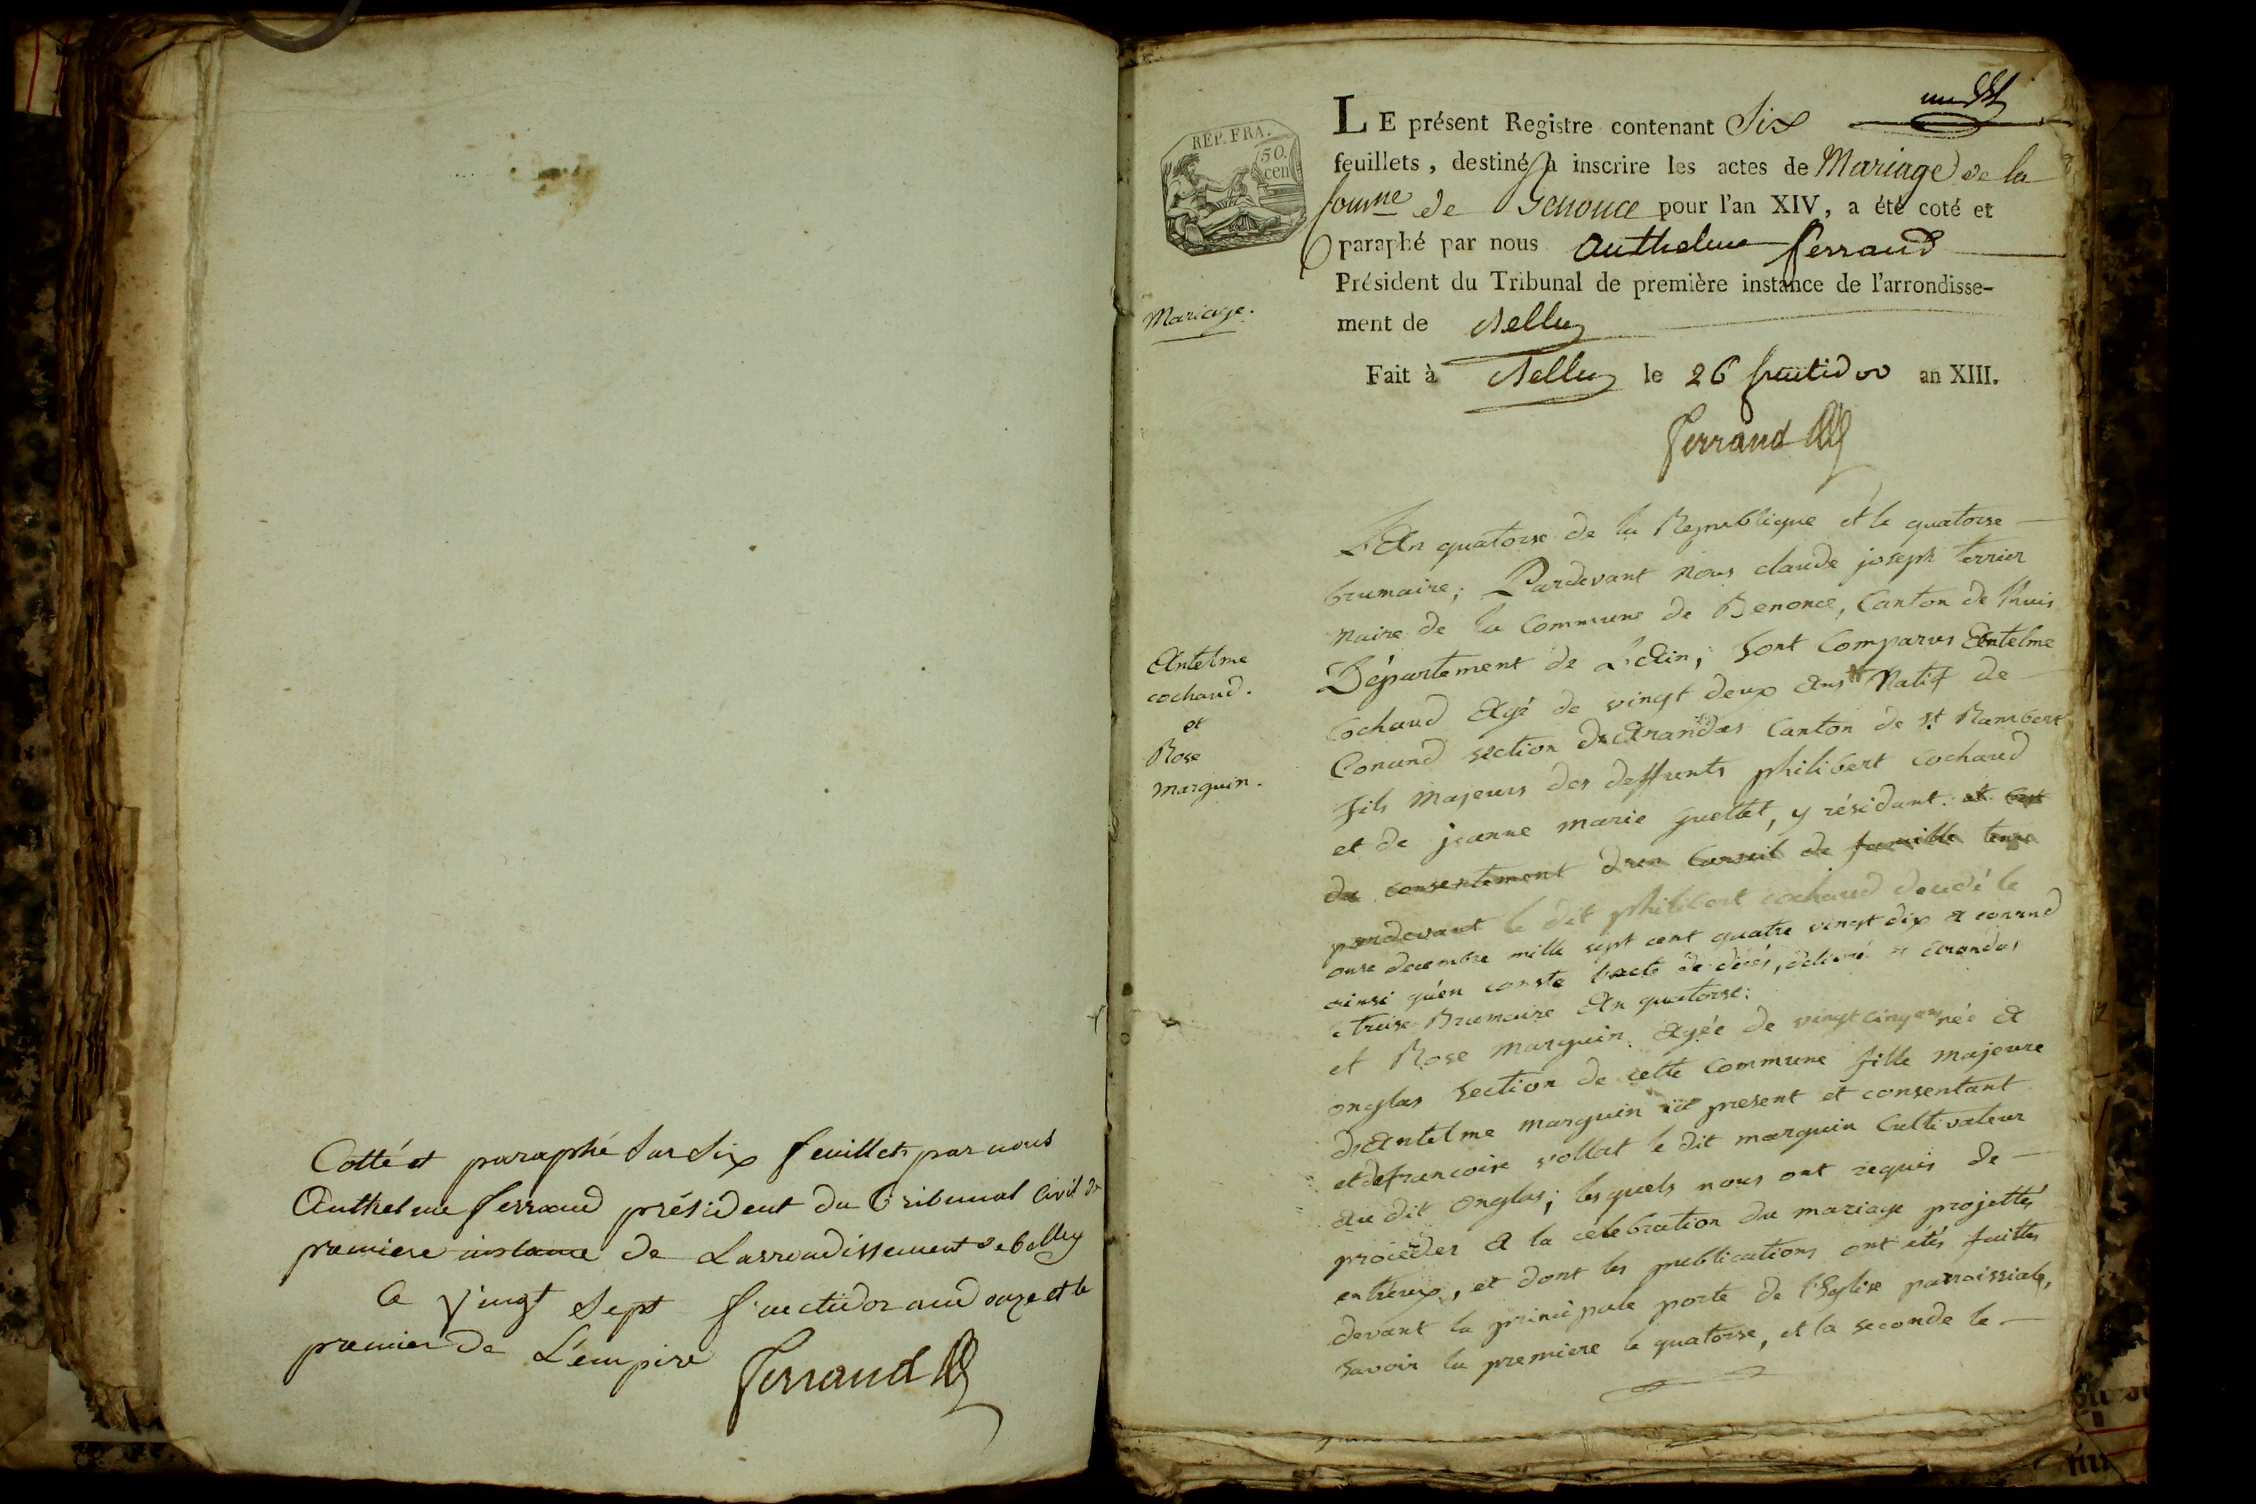 Cotté et paraphé sur six feuillets par nous
Anthelme ferrand président du tribunal Civil de
premiere instance de L'arrondissement de belley
le vingt sept fructidor and onze et le
premier de L'empire
ferrand
REP. FRA.
50.
cen
un
LE présent Registre contenant Six
feuillets, destiné à inscrire les actes de Mariage de la
Comne de Benonce pour l'an XIV, a été coté et
paraphé par nous Anthelme ferrand
Président du Tribunal de première instance de l'arrondisse-
ment de Belley
Fait à Belley le 26 fructidor an XIII.
ferrand
Mariage.
Antelme
cochaud.
et
Rose
marguin.
L'An quatorse de la Republique et le quatorse
brumaire; Pardevant nous claude joseph terrier
maire de la Commune de Benonce, Canton de lhuis
Département de L'Ain, sont Comparus Antelme
Cochaud Agé de vingt deux Ans Natif de
Conand section d'Arandas Canton de St Rambert
fils Majeurs des deffunts philibert cochaud
et de jeanne marie guettet, y résidant. et
du consentement d'un Conseil de famille tenu
pardevant le dit philibert cochaud décédé le
onse decembre mille sept cent quatre vingt dix a conand
ainsi qu'en conste l'acte de décés, délivré a Arandas
le treise Brumaire An quatorse;
et Rose marguin Agée de vingt cinq ans née A
onglas section de cette Commune fille majeure
d'Antelme marguin ici present et consentant
et de francoise vollat le dit marguin Cultivateur
au dit onglas; lesquels nous ont requis de
procéder A la célébration du mariage projetté
entreux, et dont les publications ont étés faittes
devant la principale porte de l'Eglise parroissiale,
savoir la premiere le quatorse, et la seconde le